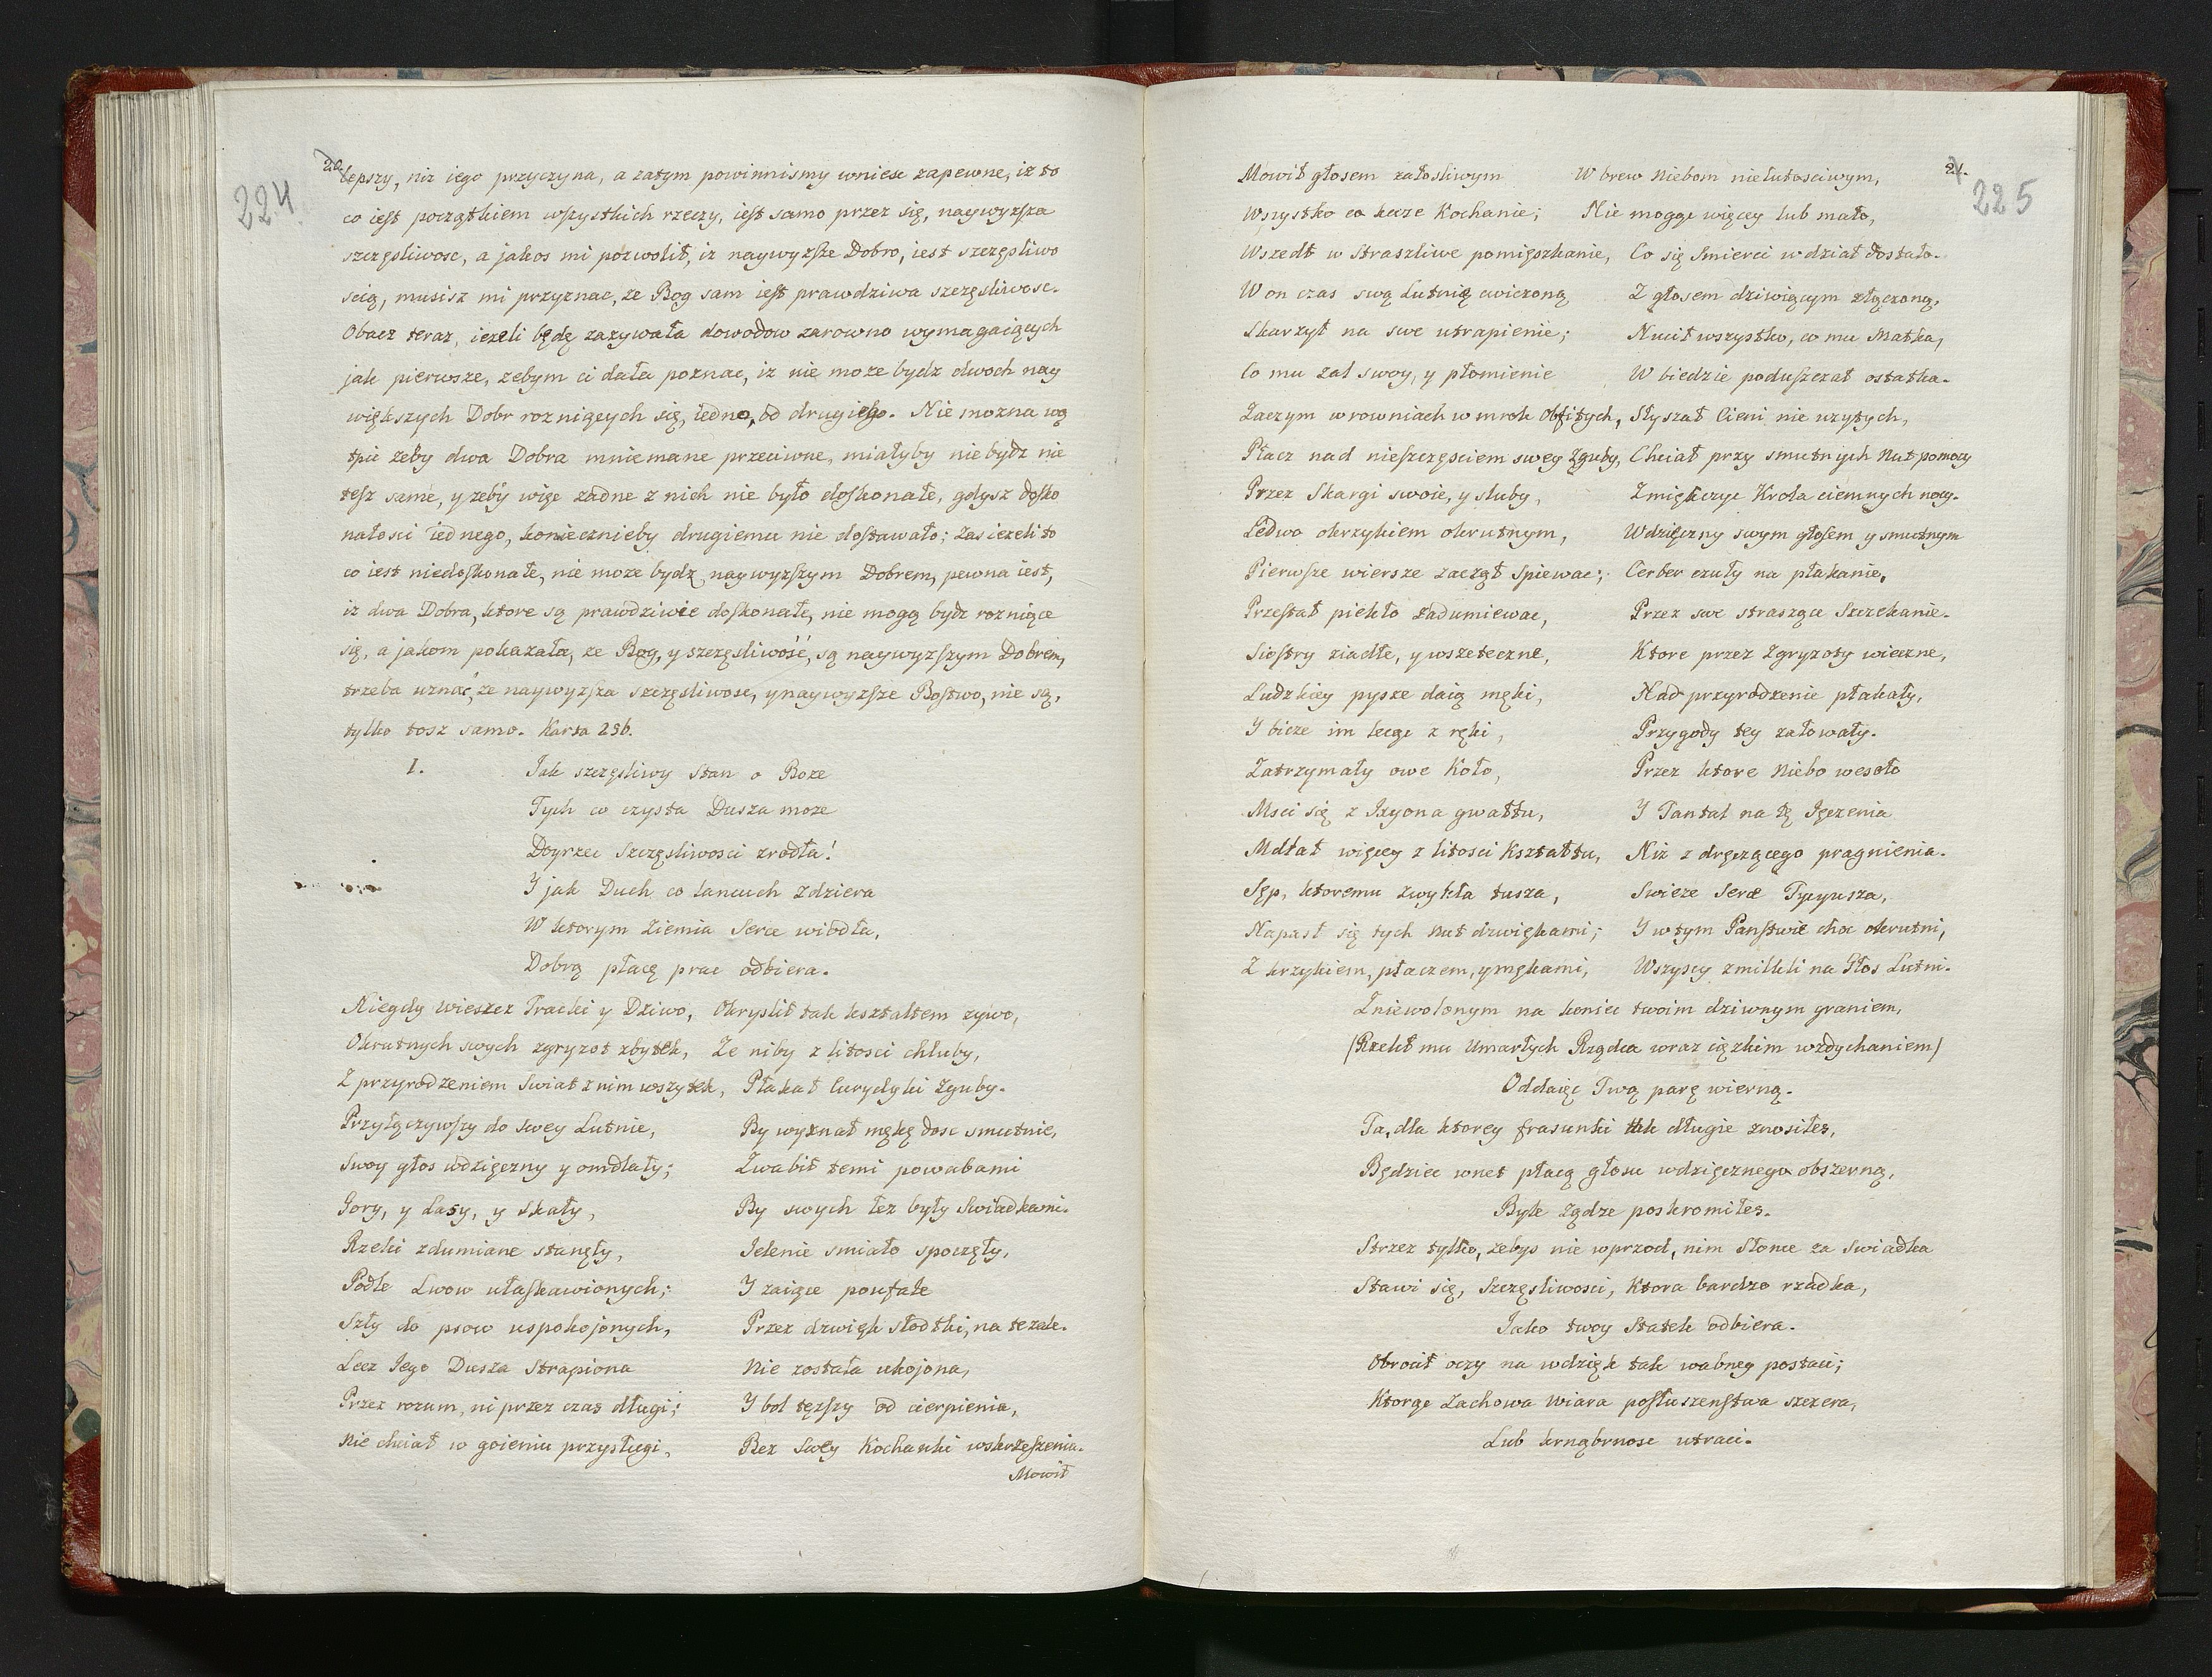 20.
224
lepszy, niz iego przyczyna, a zatym powinnismy wniesc zapewne, iz to
co iest początkiem wszystkich rzeczy, iest samo przez się, naywyzsza
szczęsliwosc, a jakos mi pozwolił, iz naywyzsze Dobro, iest szczęsliwo
scią, musisz mi przyznac, ze Bog sam iest prawdziwa szczęsliwosc.
Obacz teraz, iezeli będę zazywała dowodow zarowno wymagaiących
jak pierwsze, zebym ci dała poznac, iz nie moze bydz dwoch nay
większych Dobr roznigcych się, iedno, od drugiego. Nie mozna wą
tpic zeby dwa Dobra mniemane przeciwne, miałyby nie bydz nie
tesz same, y zeby więc zadne z nich nie było doskonałe, gdysz dosko
nałosci iednego, koniecznieby drugiemu nie dostawało; Zas iezeli to
co iest niedoskonałe, nie moze bydz naywyzszym Dobrem, pewna iest,
iz dwa Dobra, ktore są prawdziwie doskonałe, nie mogą bydz roznigce
się, a jakom pokazała, ze Bog, y szczęsliwość, są naywyzszym Dobrem,
trzeba uznać, ze naywyzsza szczęsliwosc, y naywyzsze Bostwo, nie są,
tylko tosz samo. Karta 256.
I. Jak szczęsliwy Stan o Boze
Tych co czysta Dusza moze
Doyrzec Szczęsliwosci zrodła!
Y jak Duch co lancuch zdziera
W ktorym Ziemia Serce wiodła,
Dobrą płacę prac odbiera.
Niegdy Wieszcz Tracki y Dziwo, Okryslił tak kształtem zywo,
Okrutnych swych zgryzot zbytek, Ze niby z litosci chluby,
Z przyrodzeniem Swiat z nim wszytek, Płakał Eurydyki Zguby.
Przyłączywszy do Swey Lutnie, By wyznał mękę dosc smutnie,
Swoy głos wdzięczny y omdlały; Zwabił temi powabami
Gory, y Lasy, y Skały, By swych łez były Swiadkami.
Rzeki zdumiane stanęły, Jelenie smiało spoczęły,
Podle Lwow ułaskawionych; Y zaiące poufałe
Szły do psow uspokojonych, Przez dzwięk słodki, na te zale.
Lecz Jego Dusza Strapiona Nie została ukojona,
Przez rozum, ni przez czas długi; Y bol tęzszy od cierpienia,
Nie chciał w goieniu przysługi, Bez Swey Kochanki wskrzeszenia.
Mowił
21.
225
Mowił głosem załosliwym W brew Niebom nielutosciwym,
Wszystko co kaze Kochanie; Nie mogąc więcey lub mało,
Wszedł w Straszliwe pomięszkanie, Co się Smierci w dział dostało.
W on czas swą Lutnią cwiczoną Z głosem dziwiącym złączoną,
Skarzył na swe utrapienie; Nucił wszystko, co mu Matka,
Co mu Zal swoy, y płomienie W biedzie poduszczał ostatka.
Zaczym w rowniach w mrok Obfitych, Słyszał Cieni nie uzytych,
Płacz nad nieszczęsciem swey Zguby, Chciał przy smutnych Nut pomocy
Przez Skargi swoie, y sluby, Zmiękczyc Krola ciemnych nocy.
Ledwo okrzykiem okrutnym, Wdzięczny swym głosem y smutnym
Pierwsze wiersze zaczął spiewac; Cerber czuły na płakanie,
Przestał piekło zadumiewac, Przez swe straszące Szczekanie.
Siostry ziadłe, y wszeteczne, Ktore przez Zgryzoty wieczne,
Ludzkiey pysze daią męki, Nad przyrodzenie płakały,
Y bicze im lecąc z ręki, Przygody tey załowały.
Zatrzymały owe Koło, Przez ktore Niebo wesoło
Msci się z Ixyona gwałtu, Y Tantal na tę Jęczenia
Mdlał więcey z litosci Kształtu, Niz z dręczącego pragnienia.
Sęp, ktoremu zwykła tusza, Swieze Serce Tycyusza,
Napasł się tych nut dzwiękami; Y w tym Panstwie choc okrutni,
Z krzykiem, płaczem, y mękami, Wszyscy zmilkli na Głos Lutni.
Zniewolonym na koniec twoim dziwnym graniem,
(Rzekł mu Umarłych Rządca wraz cięzkim wzdychaniem)
Oddaięc Twą parę wierną.
Ta, dla ktorey frasunki tak długie znosiłes,
Będziec wnet płacą głosu wdzięcznego obszerną,
Byle Ządze poskromiłes.
Strzez tylko, zebys nie wprzod, nim Słonce za Swiadka
Stawi się, Szczęsliwosci, Ktora bardzo rzadka,
Jako twoy Statek odbiera.
Obrocił oczy na wdzięk tak wabney postaci;
Ktorąc Zachowa Wiara posłuszenstwa szczera,
Lub krnąbrnosc utraci.